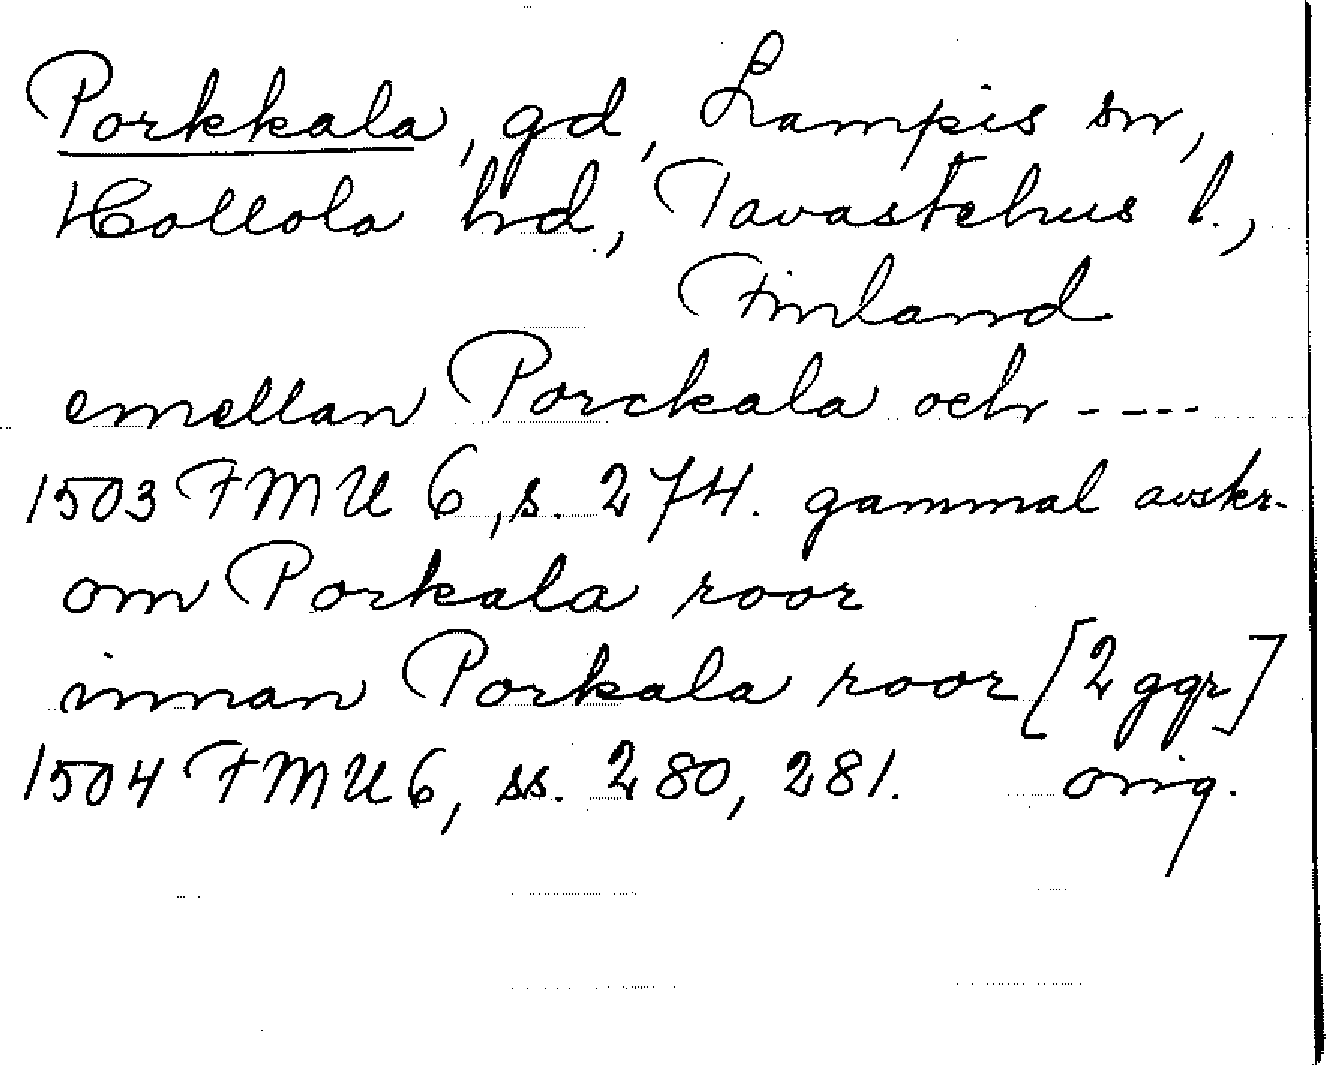 Porkkala, gd, Lampis sn,
Hollola hd, Tavastehus l.,
Finland
emellan Porckala och ----
1503 FMU 6, s. 274. gammal avskr.
om Porkala roor
innan Porkala roor [2 ggr]
1504 FMU 6, ss. 280, 281. orig.